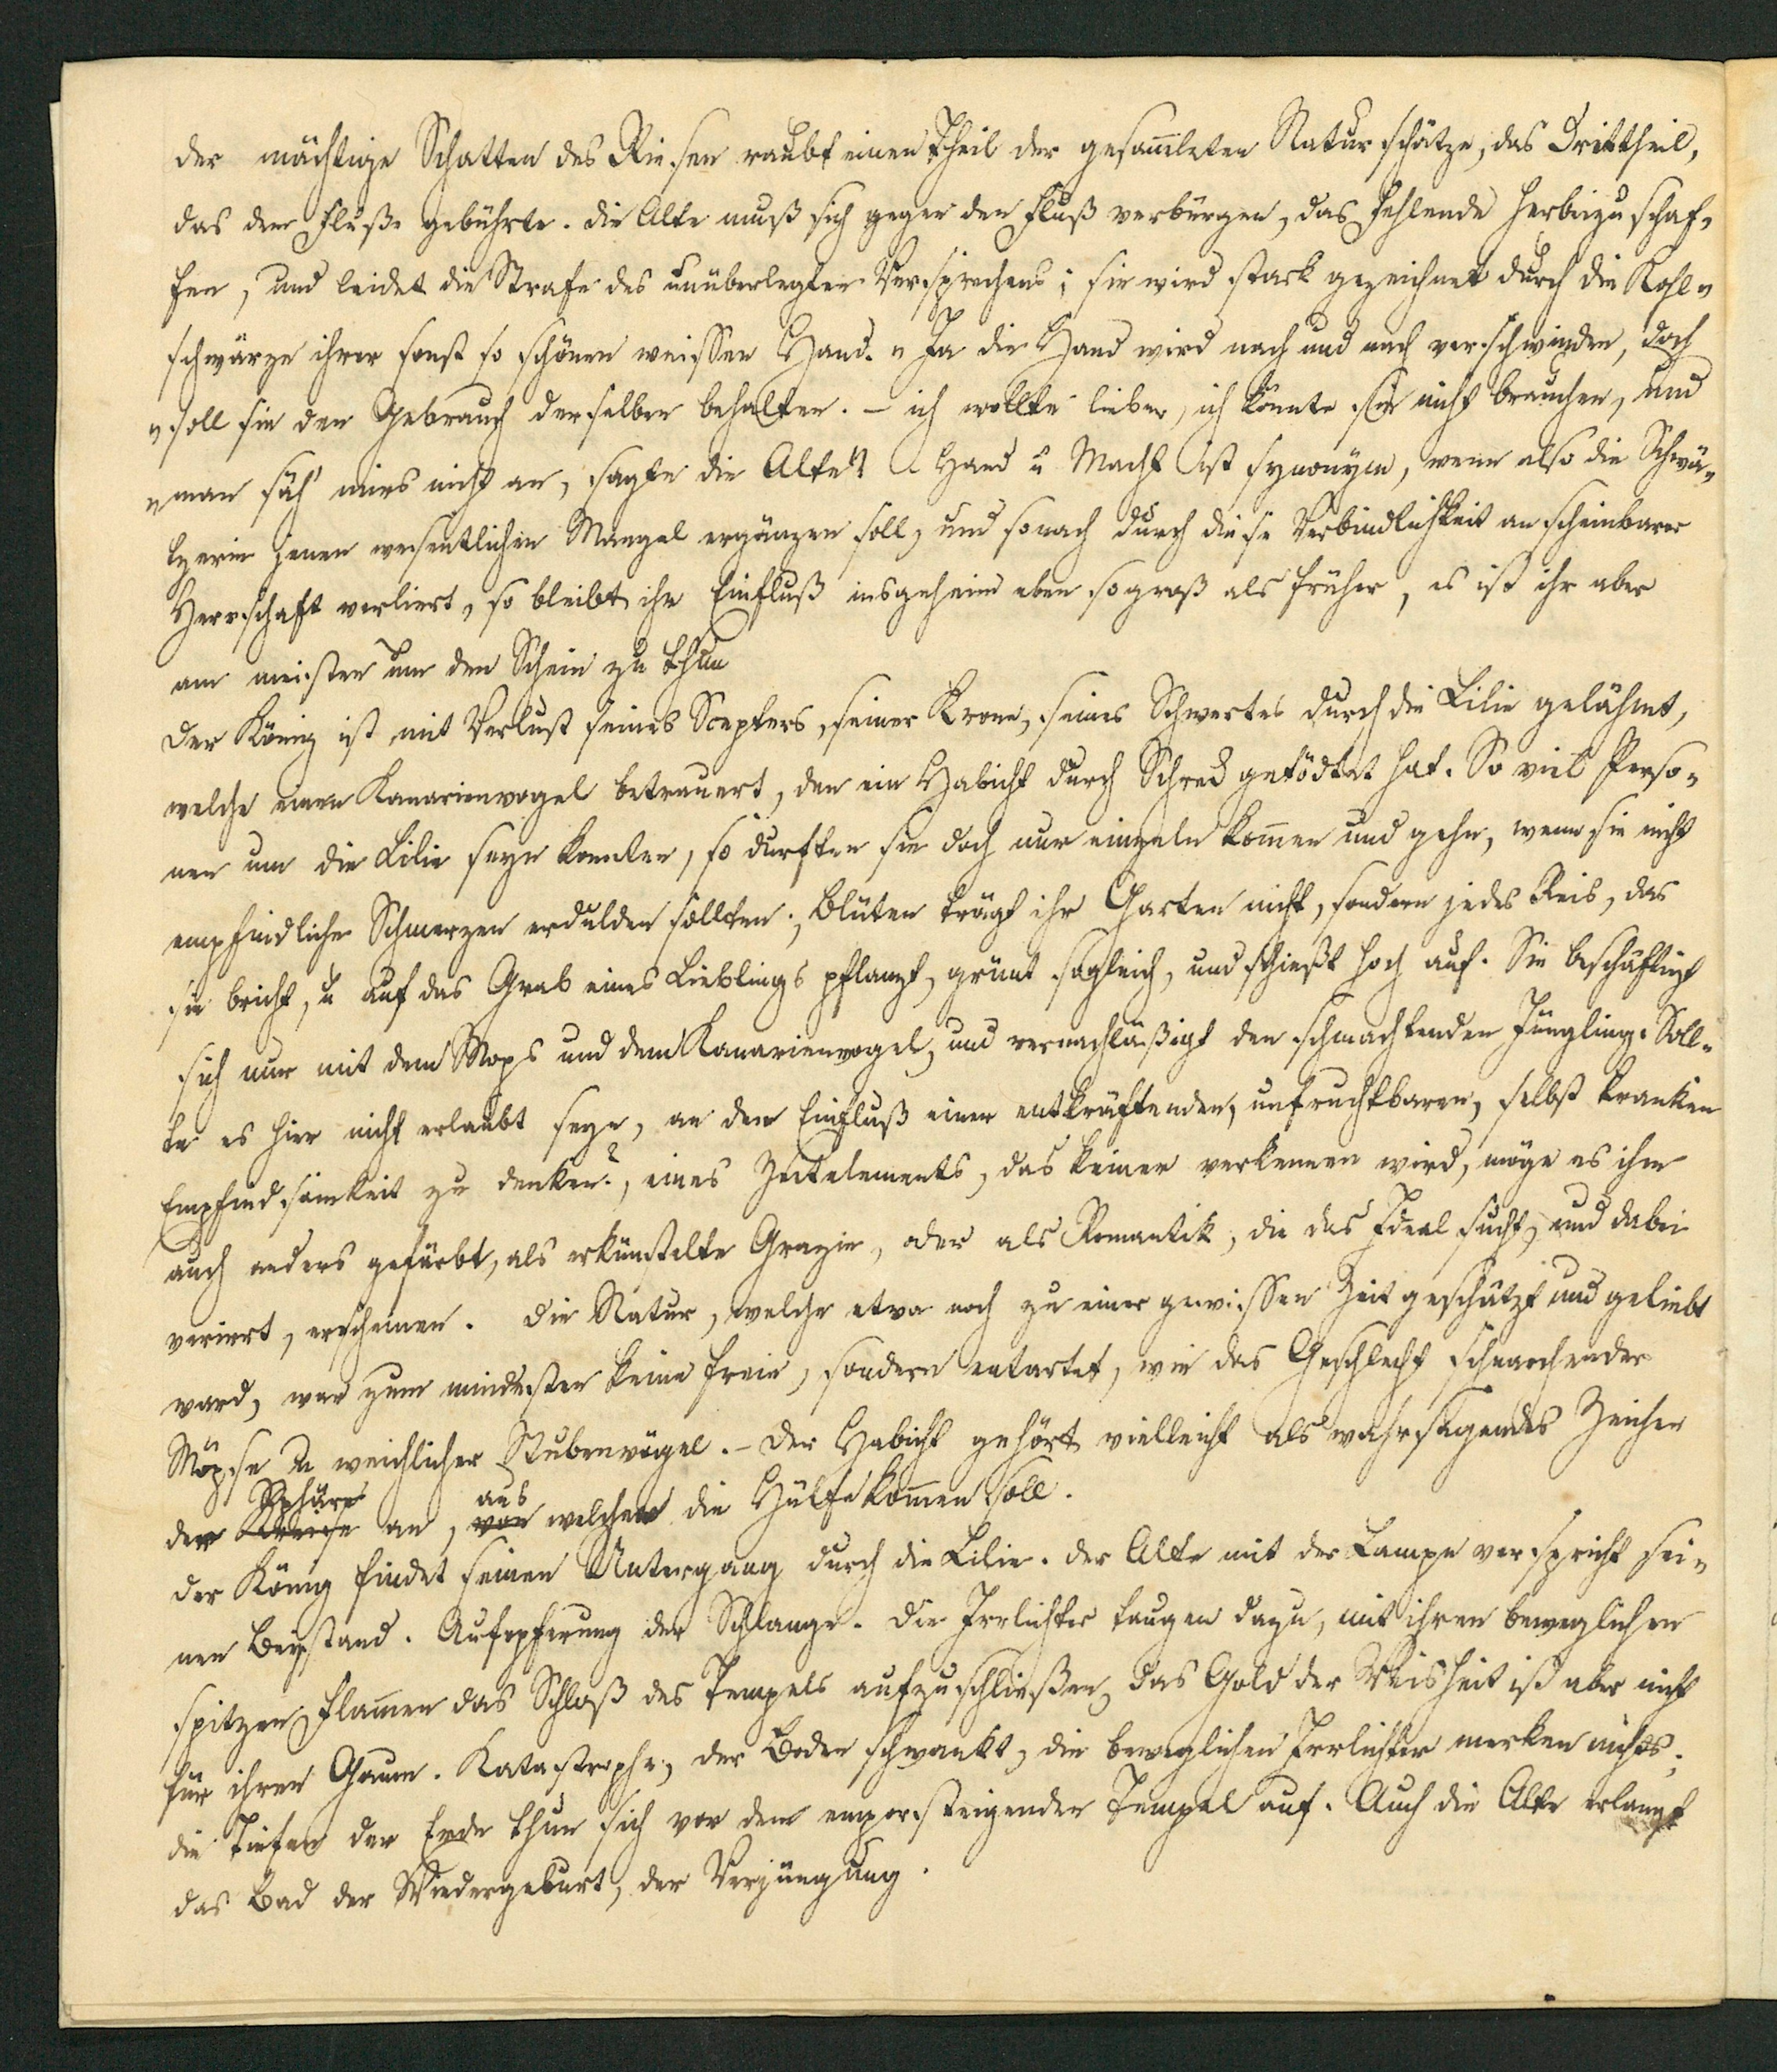 der mächtige Schatten des Riesen raubt einen Theil der gesam̄leten Naturschätze, das Drittheil,
das dem Fluße gebührte. Die Alte muß sich gegen den Fluß verbürgen, das Fehlende herbeizuschaf-
fen, und leidet die Strafe des unüberlegten Versprechens; sie wird stark gezeichnet durch die Kohl-
schwärze ihrer sonst so schönen weissen Hand. „Ja die Hand wird nach und nach verschwinden, doch
„soll sie den Gebrauch derselben behalten. – ich wollte lieber, ich könnte sie nicht brauchen, und
„man säh' mirs nicht an, sagte die Alte“ Hand u Macht ist synonym, wenn also die Schwä-
tzerin jenen wesentlichen Mangel ergänzen soll, und sonach durch diese Verbindlichkeit an scheinbarer
Herrschaft verliert, so bleibt ihr Einfluß insgeheim eben so groß als früher, es ist ihr aber
am meisten um den Schein zu thun
Der König ist mit Verlust seines Scepters, seiner Krone, seines Schwertes durch die Lilie gelähmt,
welche einen Kanarienvogel betrauert, den ein Habicht durch Schreck getödtet hat. So viel Perso-
nen um die Lilie seyn konnten, so durften sie doch nur einzeln kom̄en und gehn, wenn sie nicht
empfindliche Schmerzen erdulden sollten; Blüten trägt ihr Garten nicht, sondern jedes Reis, das
sie bricht, u auf das Grab eines Lieblings pflanzt, grünt sogleich, und schießt hoch auf. Sie beschäftigt
sich nur mit dem Mops und dem Kanarienvogel, und vernachläßigt den schmachtenden Jüngling. Soll-
te es hier nicht erlaubt seyn, an den Einfluß einer entkräftenden, unfruchtbaren, selbst kranken
Empfindsamkeit zu denken?, eines Zeitelements, das keiner verkennen wird, möge es ihm
auch anders gefärbt, als erkünstelte Grazie, oder als Romantik, die das Ideal sucht, und dabei
verirrt, erscheinen. Die Natur, welche etwa noch zu einer gewissen Zeit geschätzt und geliebt
ward, war zum mindesten keine freie, sondern entartet, wie das Geschlecht schnarchender
Möpse u weichlicher Stubenvögel. – Der Habicht gehört vielleicht als wahrsagendes Zeichen
Sphäre aus
der Kreise an, von welcher die Hülfe kom̄en soll.
Der König findet seinen Untergang durch die Lilie. Der Alte mit der Lampe verspricht sei-
nen Beystand. Aufopferung der Schlange. Die Irrlichter taugen dazu, mit ihren beweglichen
spitzen Flam̄en das Schloß des Tempels aufzuschließen, das Gold der Weisheit ist aber nicht
für ihren Gaum. Katastrophe, der Boden schwankt, die beweglichen Irrlichter merken nichts;
die Tiefen der Erde thun sich vor dem emporsteigenden Tempel auf. Auch die Alte erlangt
das Bad der Wiedergeburt, der Verjüngung.